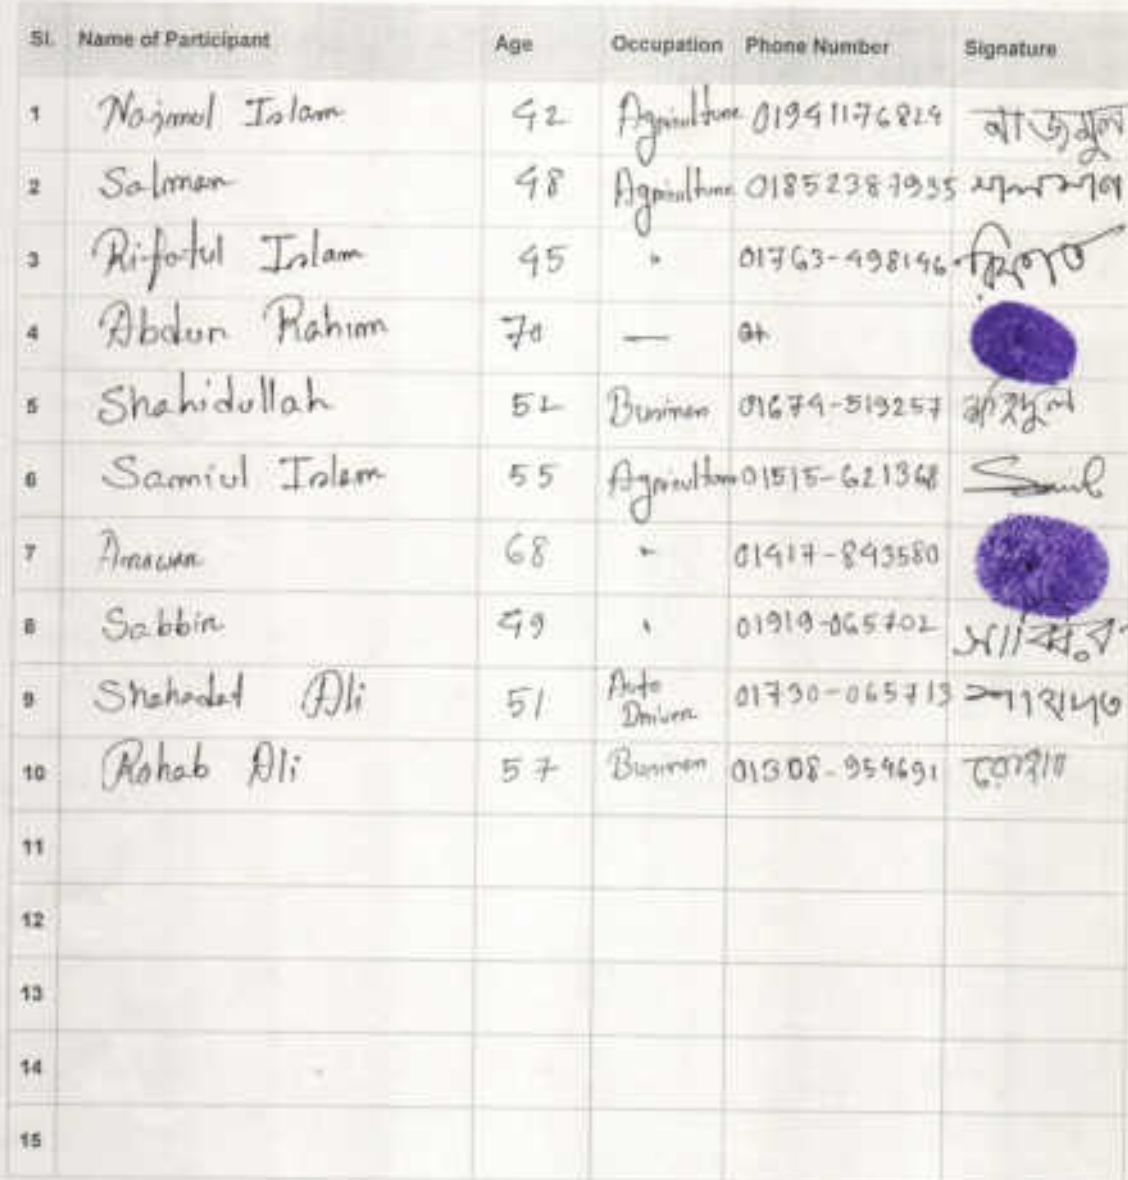 Sl. Name of Participant Age Occupation Phone Number Signature
1 Najmul Islam 42 Agriculture 01941176824 নাজমুল
2 Salman 48 Agriculture 01852387935 সালমান
3 Rifatul Islam 45 " 01763-498146 রিফাত
4 Abdur Rahim 70 —
5 Shahidullah 52 Businen 01674-519257
6 Samiul Islam 55 Agriculture 01515-621368
7 68 " 01417-843580
8 Sabbir 49 " 01919-065702 সাব্বির
9 Shahadat Ali 51 Auto Driver 01730-065713 শাহাদত
10 Rahab Ali 57 Businen 01308-954691
11
12
13
14
15